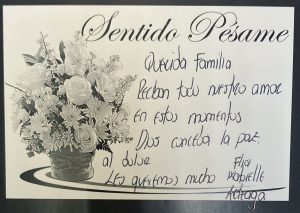 Sentido Pésame
Querida Familia
Reciban todo nuestro amor
en estos momentos
Dios conceda la paz
al dulce
Les queremos mucho
Arteaga